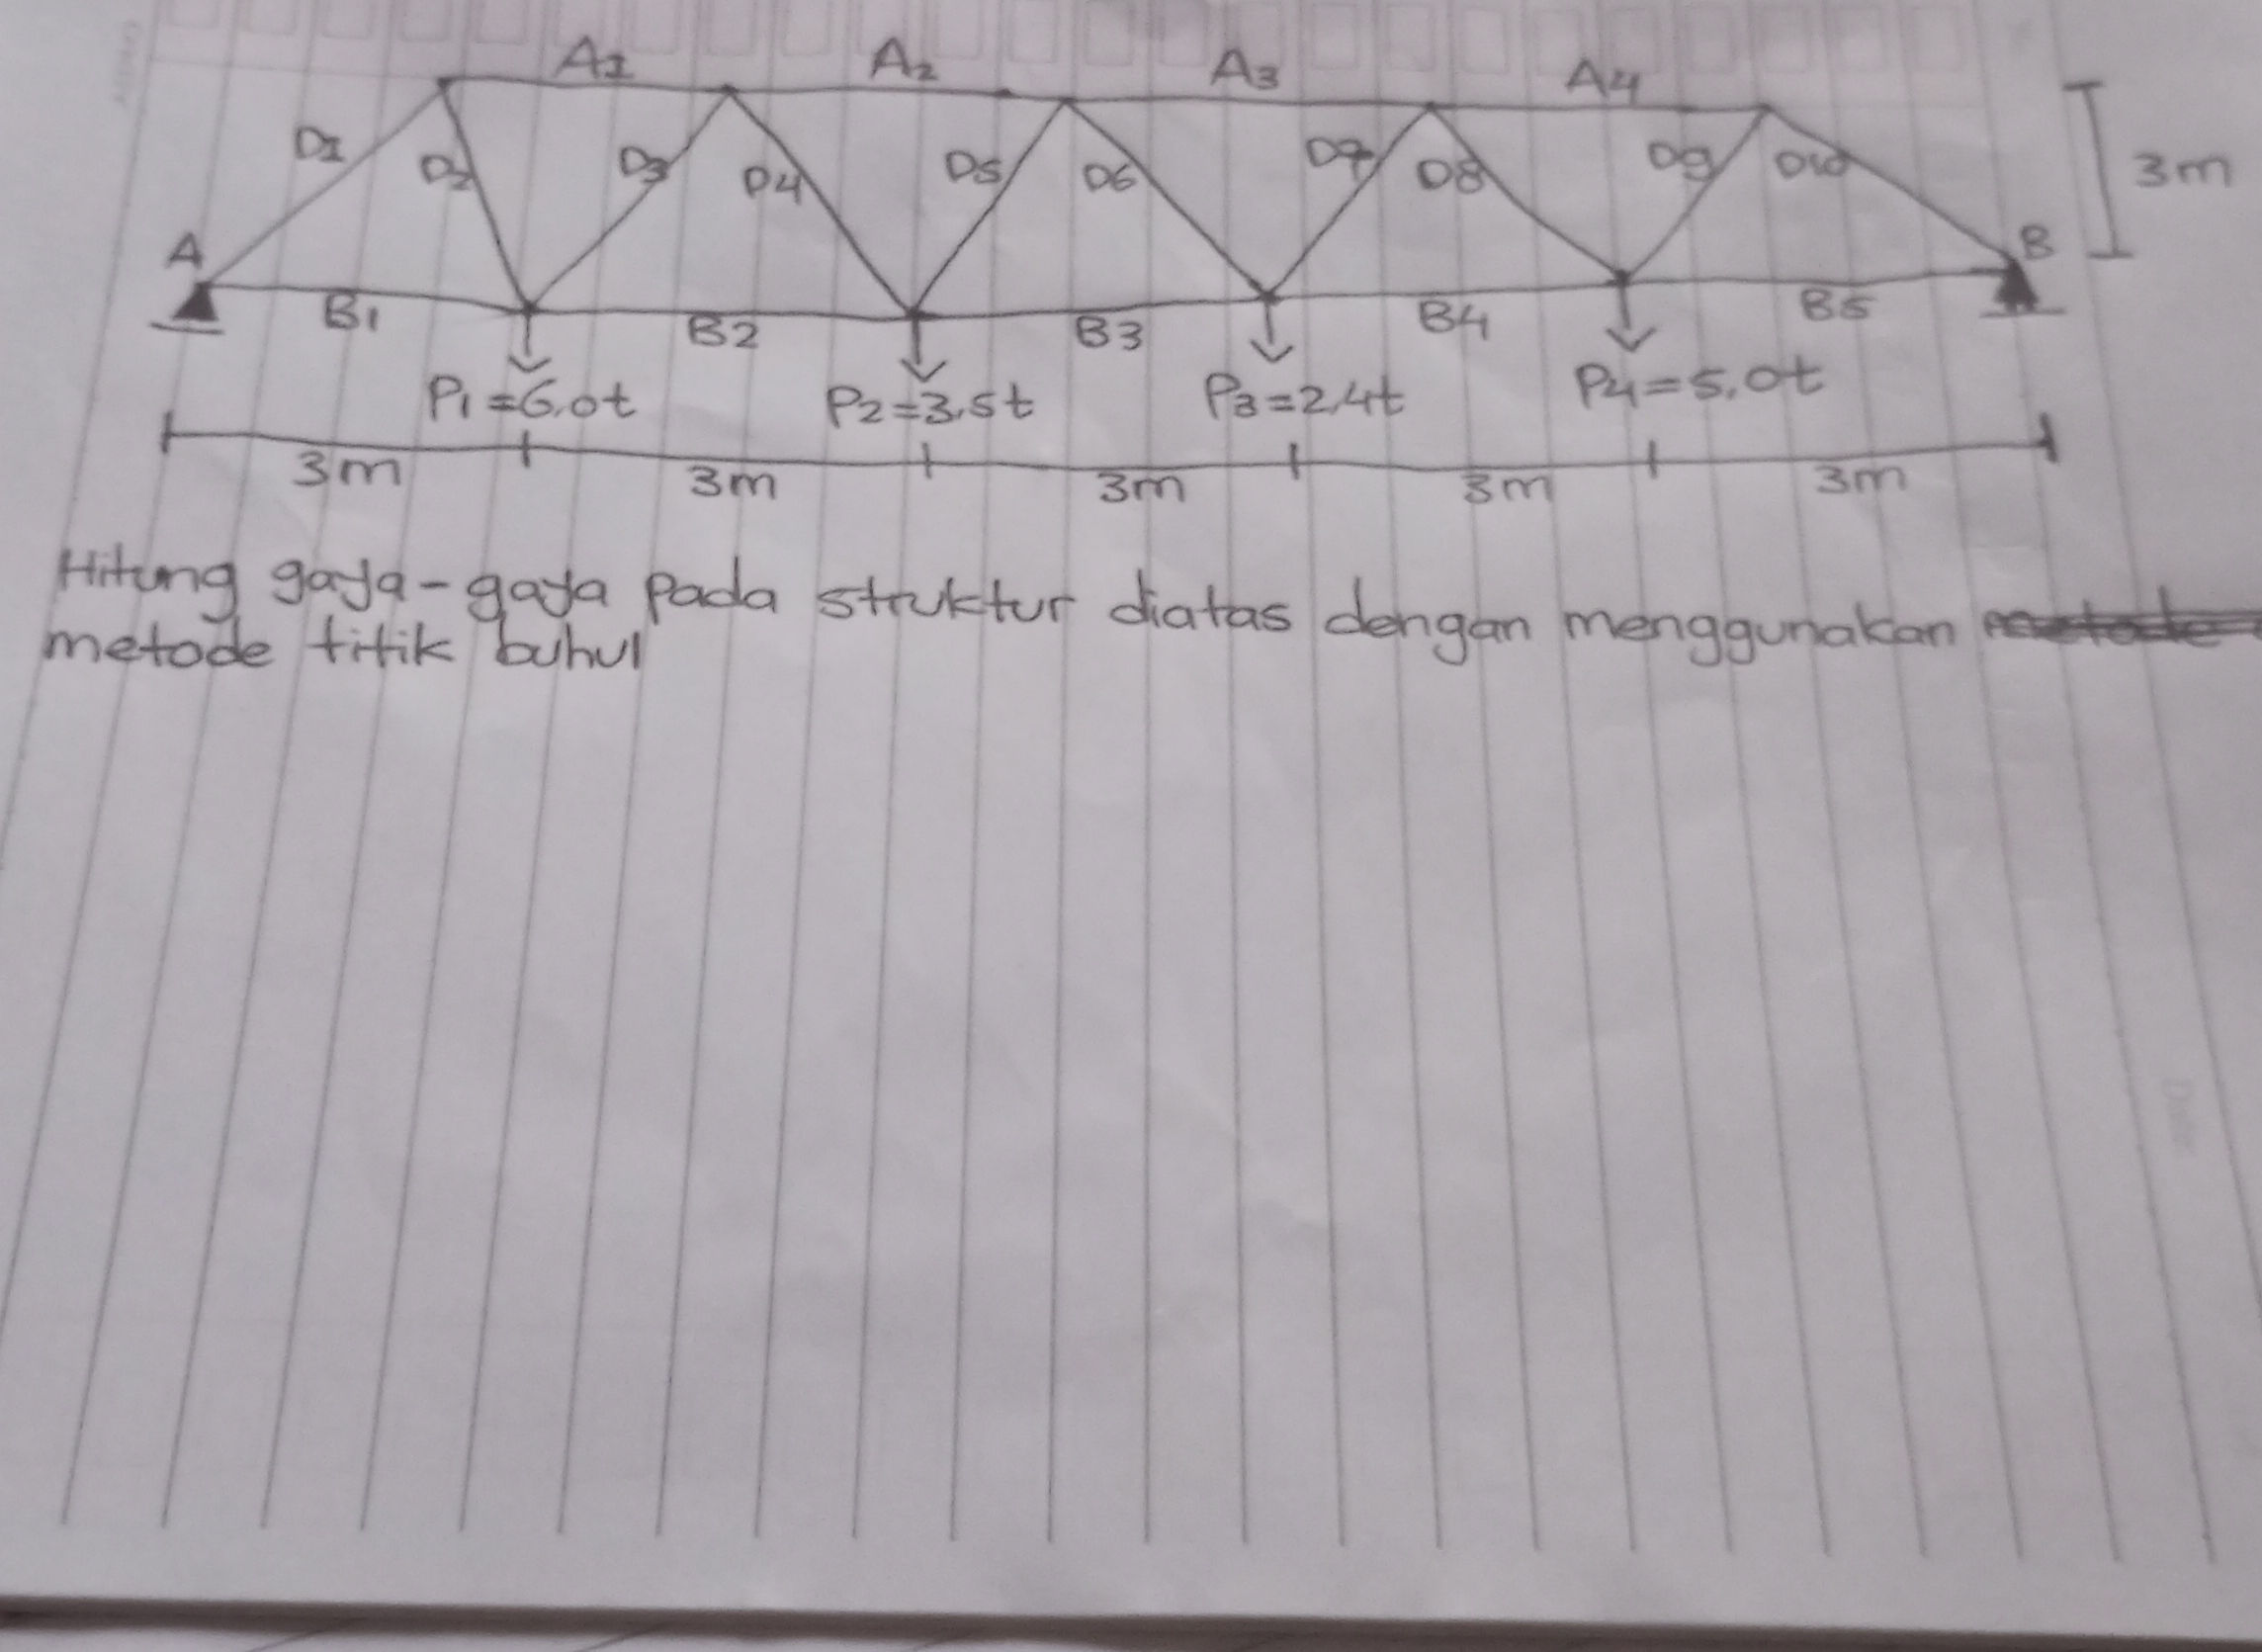 A1 A2 A3 A4
D1 D2 D3 D4 D5 D6 D7 D8 D9 D10 3m
A B
B1 B2 B3 B4 B5
P1=6,0t P2=3,5t P3=2,4t P4=5,0t
3m 3m 3m 3m 3m
Hitung gaya-gaya pada struktur diatas dengan menggunakan
metode titik buhul